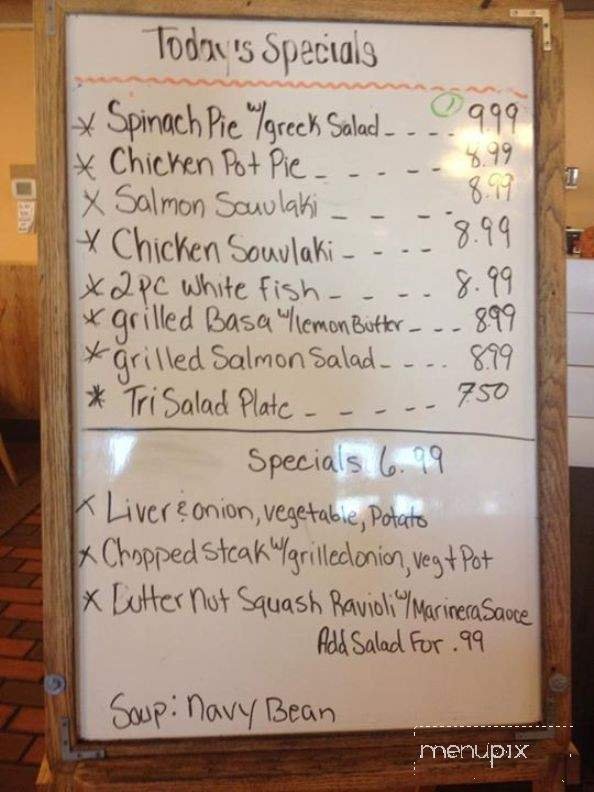 Today's Specials
* Spinach Pie w/greek Salad - - - - 9.99
* Chicken Pot Pie - - - - - 8.99
* Salmon Souvlaki - - - - 8.99
* Chicken Souvlaki - - - - 8.99
* 2pc White Fish - - - - 8.99
* grilled Basa w/lemon Butter - - - 8.99
* grilled Salmon Salad - - - - 8.99
* Tri Salad Plate - - - - - 7.50
Specials 6.99
* Liver & onion, vegetable, Potato
* Chopped Steak w/grilled onion, veg + Pot
* Butter Nut Squash Ravioli w/Marinera Sauce
Add Salad For .99
Soup: Navy Bean
menupix